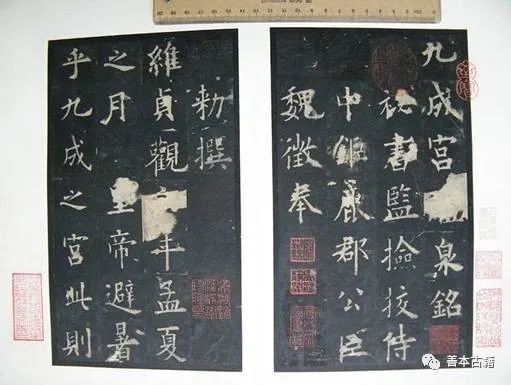 九成宮泉銘
秘書監撿挍侍
中鉅鹿郡公臣
魏徵奉
勑撰
維貞觀年孟夏
之月皇帝避暑
乎九成之宮此則
善本古籍